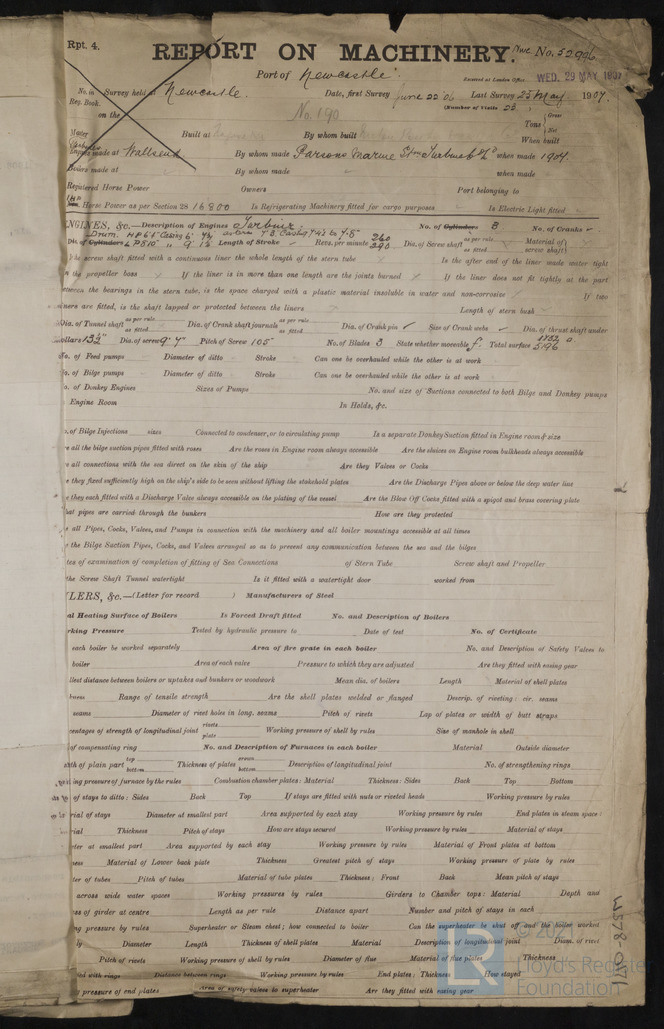 Rpt. 4.
REPORT ON MACHINERY.
No. 52906
Port of Newcastle
Received at London Office WED. 29 MAY 1907
No. in Reg. Book. Survey held at Newcastle. Date, first Survey June 22 06 Last Survey 25 May 1907.
(Number of Visits 23
on the No. 190
Tons Gross Net
Master Built at By whom built When built
Engines made at Wallsend By whom made Parsons Marine Stm Turbine Co Ld when made 1907.
Boilers made at By whom made when made
Registered Horse Power Owners Port belonging to
Horse Power as per Section 28 16800 Is Refrigerating Machinery fitted for cargo purposes Is Electric Light fitted
ENGINES, &c.—Description of Engines Turbines No. of Cylinders 3 No. of Cranks
Length of Stroke Revs. per minute 260 290 Dia. of Screw shaft as per rule as fitted Material of screw shaft
the screw shaft fitted with a continuous liner the whole length of the stern tube Is the after end of the liner made water tight
the propeller boss If the liner is in more than one length are the joints burned If the liner does not fit tightly at the part
between the bearings in the stern tube, is the space charged with a plastic material insoluble in water and non-corrosive If two
liners are fitted, is the shaft lapped or protected between the liners Length of stern bush
Dia. of Tunnel shaft as per rule as fitted Dia. of Crank shaft journals as per rule as fitted Dia. of Crank pin Size of Crank webs Dia. of thrust shaft under
collars 13½" Dia. of screw 9' 7" Pitch of Screw 105" No. of Blades 3 State whether moveable Total surface
No. of Feed pumps Diameter of ditto Stroke Can one be overhauled while the other is at work
No. of Bilge pumps Diameter of ditto Stroke Can one be overhauled while the other is at work
No. of Donkey Engines Sizes of Pumps No. and size of Suctions connected to both Bilge and Donkey pumps
Engine Room In Holds, &c.
No. of Bilge Injections sizes Connected to condenser, or to circulating pump Is a separate Donkey Suction fitted in Engine room & size
are all the bilge suction pipes fitted with roses Are the roses in Engine room always accessible Are the sluices on Engine room bulkheads always accessible
all connections with the sea direct on the skin of the ship Are they Valves or Cocks
they fixed sufficiently high on the ship's side to be seen without lifting the stokehold plates Are the Discharge Pipes above or below the deep water line
they each fitted with a Discharge Valve always accessible on the plating of the vessel Are the Blow Off Cocks fitted with a spigot and brass covering plate
what pipes are carried through the bunkers How are they protected
all Pipes, Cocks, Valves, and Pumps in connection with the machinery and all boiler mountings accessible at all times
the Bilge Suction Pipes, Cocks, and Valves arranged so as to prevent any communication between the sea and the bilges
tes of examination of completion of fitting of Sea Connections of Stern Tube Screw shaft and Propeller
the Screw Shaft Tunnel watertight Is it fitted with a watertight door worked from
LERS, &c.—(Letter for record ) Manufacturers of Steel
al Heating Surface of Boilers Is Forced Draft fitted No. and Description of Boilers
rking Pressure Tested by hydraulic pressure to Date of test No. of Certificate
each boiler be worked separately Area of fire grate in each boiler No. and Description of Safety Valves to
boiler Area of each valve Pressure to which they are adjusted Are they fitted with easing gear
llest distance between boilers or uptakes and bunkers or woodwork Mean dia. of boilers Length Material of shell plates
Range of tensile strength Are the shell plates welded or flanged Descrip. of riveting: cir. seams
seams Diameter of rivet holes in long. seams Pitch of rivets Lap of plates or width of butt straps
centages of strength of longitudinal joint rivets plate Working pressure of shell by rules Size of manhole in shell
of compensating ring No. and Description of Furnaces in each boiler Material Outside diameter
th of plain part top bottom Thickness of plates crown bottom Description of longitudinal joint No. of strengthening rings
ing pressure of furnace by the rules Combustion chamber plates: Material Thickness: Sides Back Top Bottom
of stays to ditto: Sides Back Top If stays are fitted with nuts or riveted heads Working pressure by rules
rial of stays Diameter at smallest part Area supported by each stay Working pressure by rules End plates in steam space:
rial Thickness Pitch of stays How are stays secured Working pressure by rules Material of stays
eter at smallest part Area supported by each stay Working pressure by rules Material of Front plates at bottom
ness Material of Lower back plate Thickness Greatest pitch of stays Working pressure of plate by rules
ter of tubes Pitch of tubes Material of tube plates Thickness: Front Back Mean pitch of stays
across wide water spaces Working pressures by rules Girders to Chamber tops: Material Depth and
ss of girder at centre Length as per rule Distance apart Number and pitch of stays in each
ng pressure by rules Superheater or Steam chest; how connected to boiler Can the superheater be shut off and the boiler worked
ly Diameter Length Thickness of shell plates Material Description of longitudinal joint Diam. of rivet
Pitch of rivets Working pressure of shell by rules Diameter of flue Material of flue plates Thickness
ed with rings Distance between rings Working pressure by rules End plates: Thickness How stayed
pressure of end plates Area of safety valves to superheater Are they fitted with easing gear
W578-0171
© 2021
Lloyd's Register
Foundation